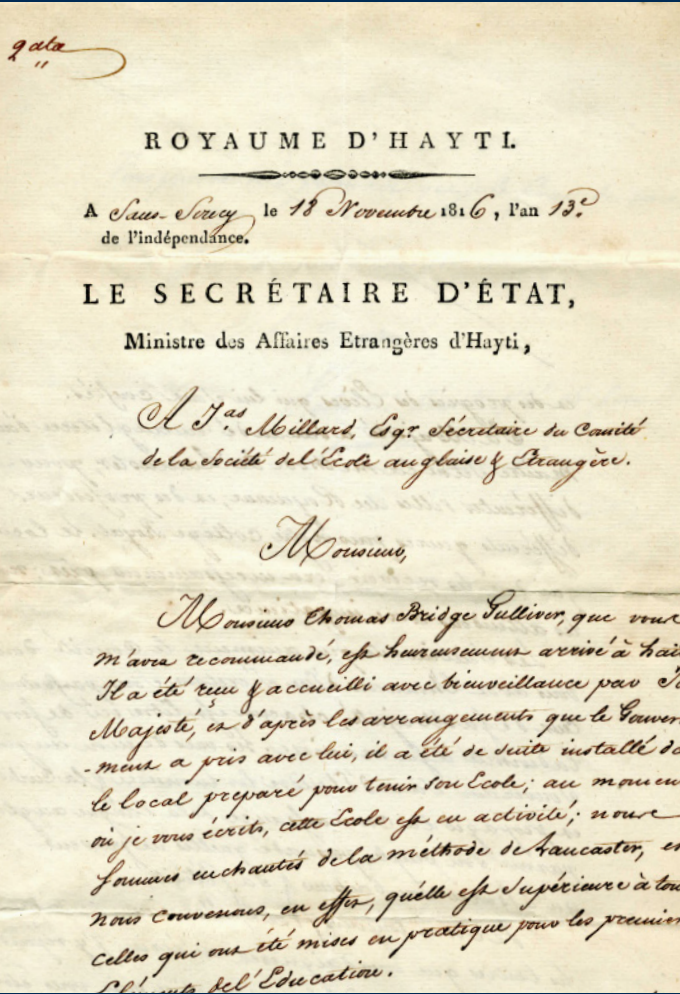 ROYAUME D'HAYTI.
A Sans-Soucy le 18 Novembre 1816, l'an 13.e
de l'indépendance.
LE SECRÉTAIRE D'ÉTAT,
Ministre des Affaires Etrangères d'Hayti,
A J.as Millard, Esqr Sécrétaire du Comité
de la Société de l'École anglaise & Etrangère.
Monsieur,
Monsieur Thomas Bridge Gulliver, que vous
m'avez recommandé, est heureusement arrivé à haï
Il a été reçu & accueilli avec bienveillance par Sa
Majesté, et d'après les arrangements que le Gouver
-ment a pris avec lui, il a été de suite installé da
le local preparé pour tenir son Ecole; au momen
où je vous écrits, cette Ecole est en activité; nous
sommes enchantés de la méthode de Lancaster, et
nous convenons, en effet, qu'elle est supérieure à tou
celles qui ont été mises en pratique pour les premier
Eléments de l'Education.